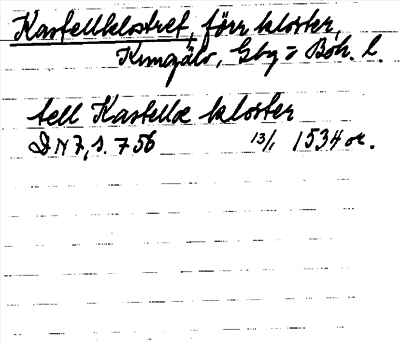 Kastellklostret, förr kloster,
Kungälv, Gbg o Boh. l.
tell Kastellæ kloster
DN 7, s. 756 13/1 1534 or.